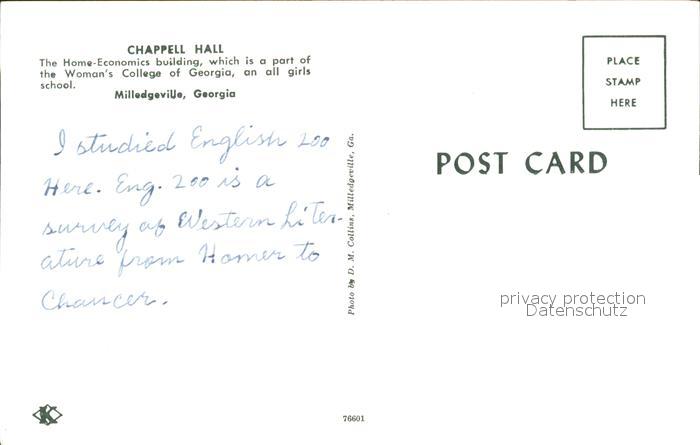 CHAPPELL HALL
The Home-Economics building, which is a part of
the Woman's College of Georgia, an all girls
school.
Milledgeville, Georgia
I studied English 200
Here. Eng. 200 is a
survey of Western Liter-
ature from Homer to
Chaucer.
Photo by D. M. Collins, Milledgeville, Ga.
PLACE
STAMP
HERE
POST CARD
privacy protection
Datenschutz
K
76601